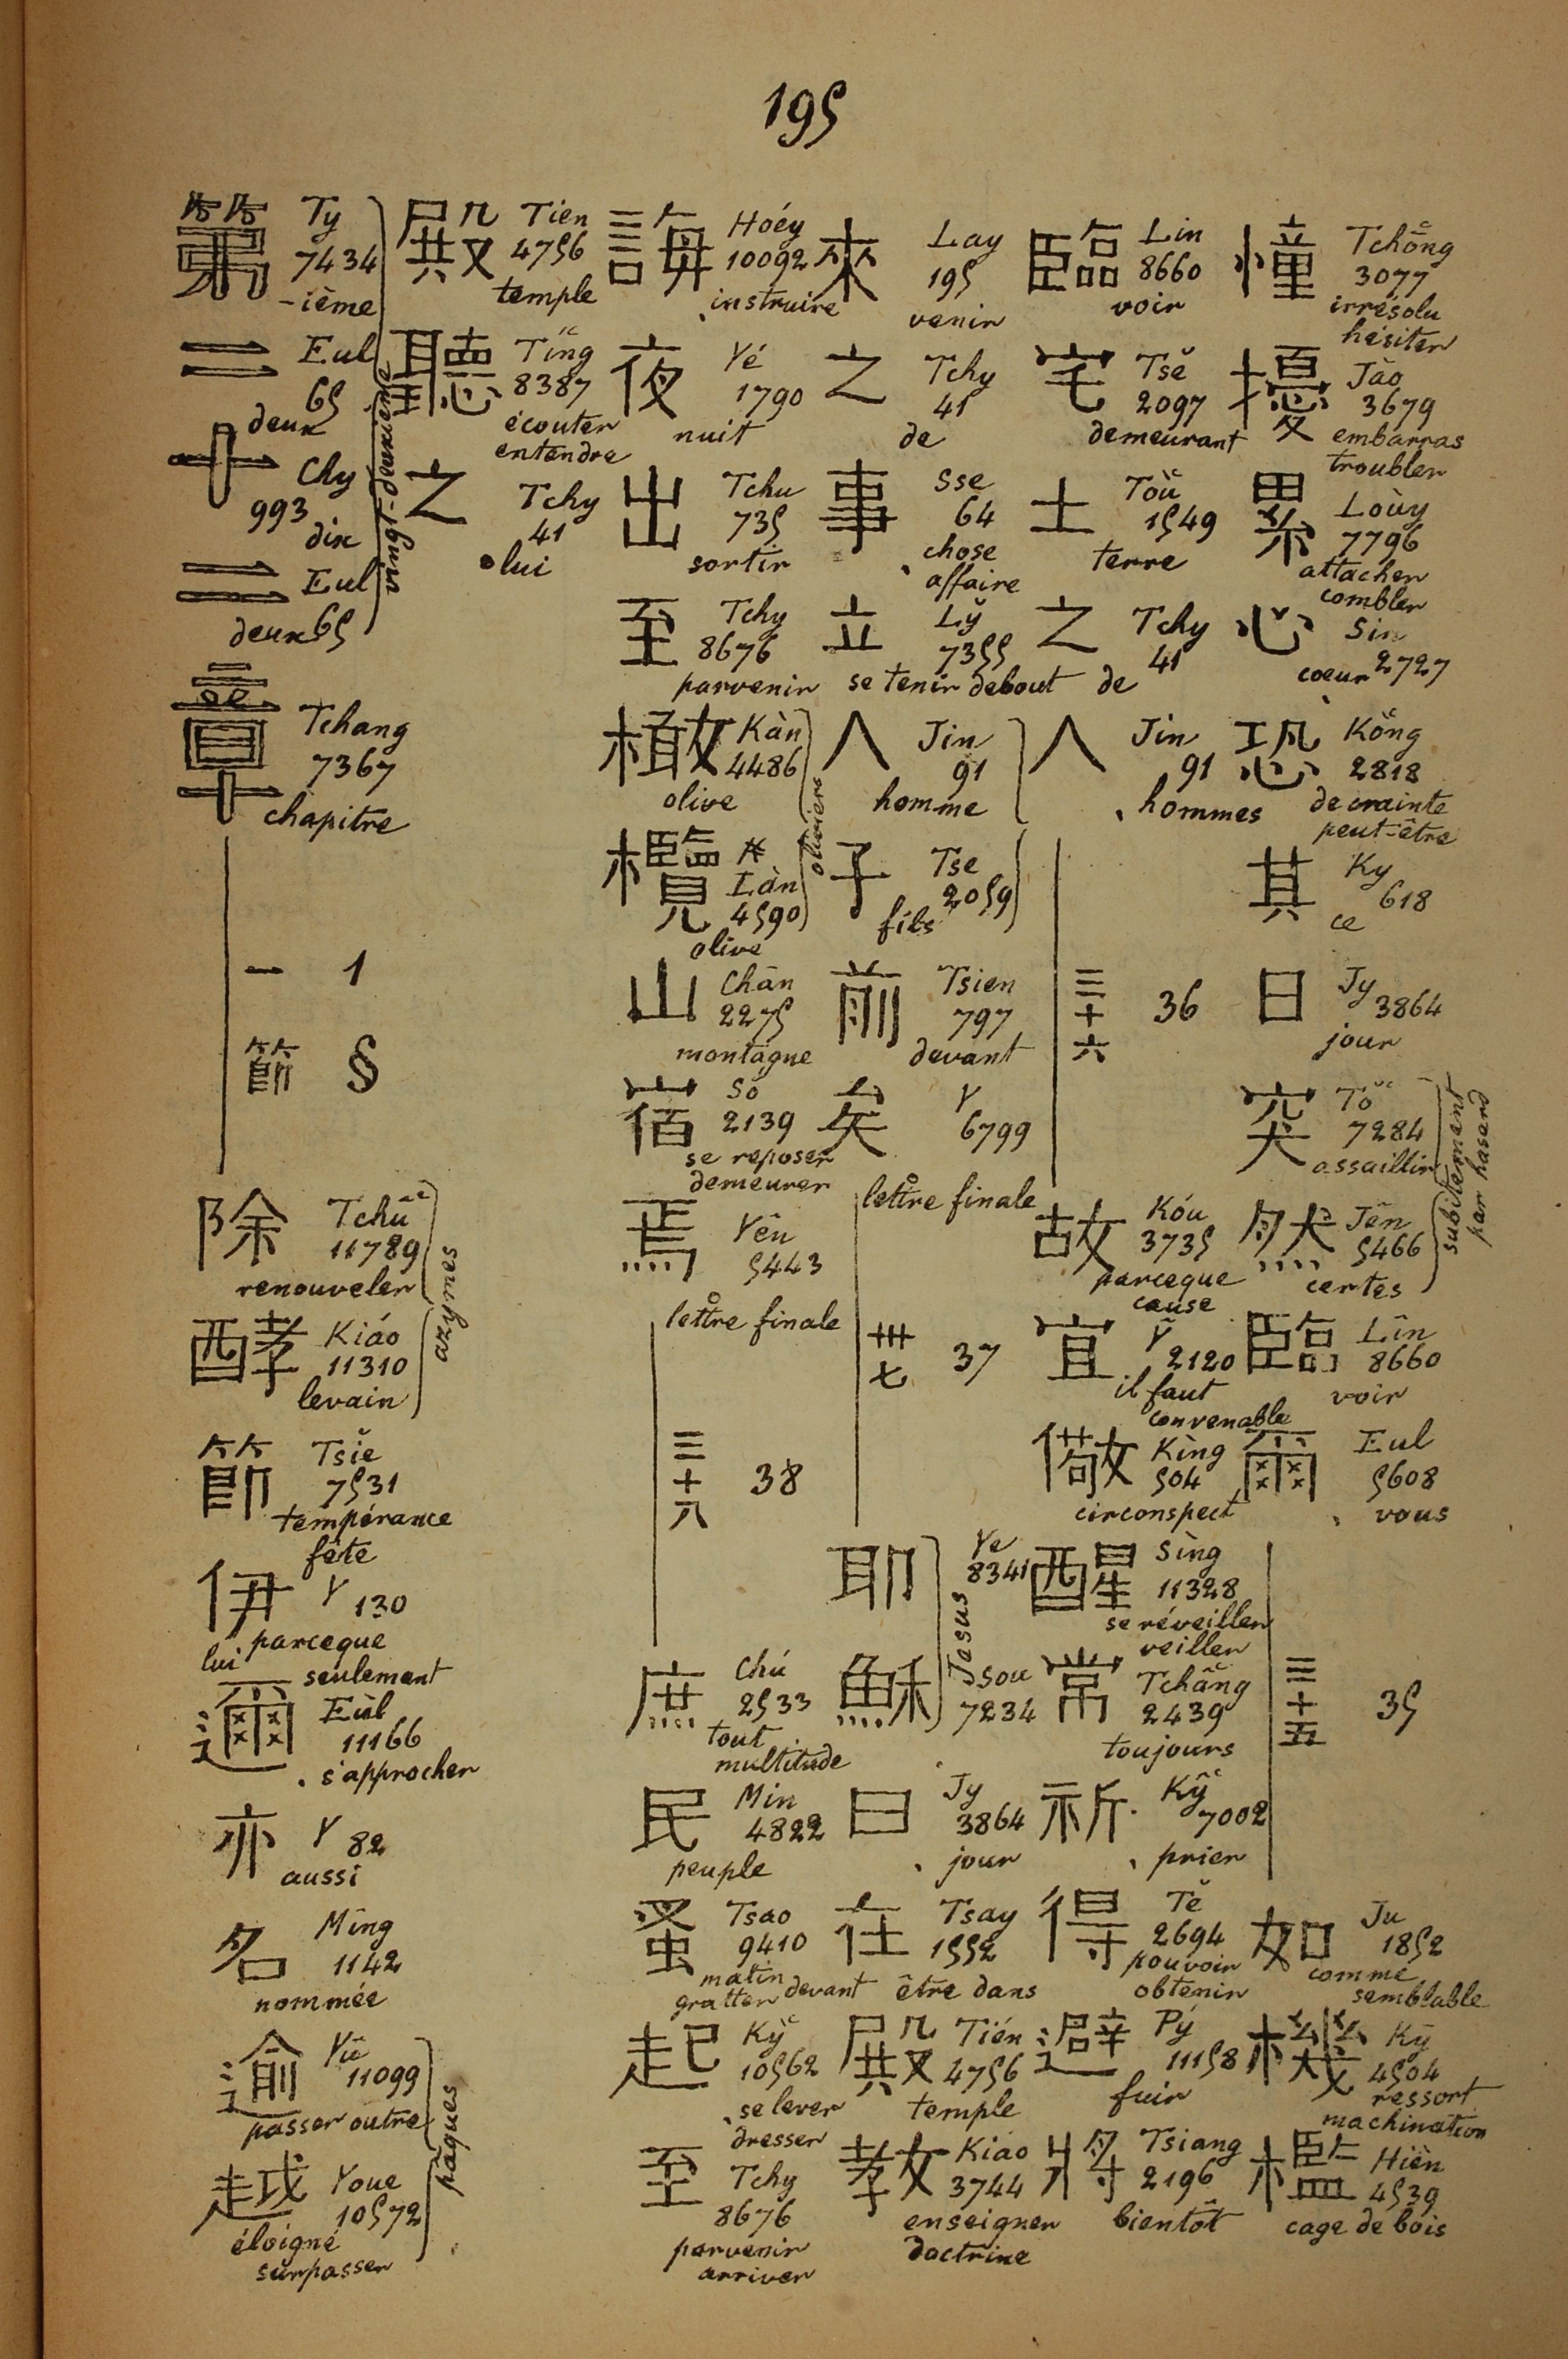 195
憧 Tchǒng 3077 irrésolu hésiter
擾 Jào 3679 embarras troubler
累 Loùy 7796 attacher combler
心 Sin 2727 coeur
恐 Kǒng 2818 de crainte peut-être
其 Ky 618 ce
日 Jy 3864 jour
突 Tǒ 7284 assaillir
然 Jên 5466 certes
subitement par hasard
臨 Lîn 8660 voir
爾 Eul 5608 vous
三十五 35
如 Ju 1852 comme semblable
機 Ky 4504 ressort machination
檻 Hièn 4539 cage de bois
臨 Lin 8660 voir
宅 Tsě 2097 demeurant
土 Toǔ 1549 terre
之 Tchy 41 de
人 Jin 91 hommes
三十六 36
故 Kóu 3735 parceque cause
宜 Ỹ 2120 il faut convenable
儆 Kìng 504 circonspect
醒 Sìng 11328 se réveiller veiller
常 Tchǎng 2439 toujours
祈 Kỹ 7002 prier
得 Tě 2694 pouvoir obtenir
避 Pý 11158 fuir
將 Tsiang 2196 bientôt
來 Lay 195 venir
之 Tchy 41 de
事 Sse 64 chose affaire
立 Lỹ 7355 se tenir debout
人 Jin 91 homme
子 Tse 2059 fils
前 Tsien 797 devant
矣 Y 6799 lettre finale
卅七 37
耶 Ye 8341
穌 Sou 7234
Jesus
日 Jy 3864 jour
在 Tsay 1552 être dans
殿 Tién 4756 temple
教 Kiao 3744 enseigner doctrine
誨 Hoéy 10092 instruire
夜 Yé 1790 nuit
出 Tchu 735 sortir
至 Tchy 8676 parvenir
橄 Kàn 4486 olive
欖 Làn 4590 olive
oliviers
山 Chān 2275 montagne
宿 Só 2139 se reposer demeurer
焉 Yên 5443 lettre finale
三十八 38
庶 Chú 2533 tout multitude
民 Min 4822 peuple
蚤 Tsao 9410 matin gratter devant
起 Kỳ 10562 se lever dresser
至 Tchy 8676 parvenir arriver
殿 Tien 4756 temple
聽 Tīng 8387 écouter entendre
之 Tchy 41 lui
第 Ty 7434 -ième
二 Eul 65 deux
十 Chy 993 dix
二 Eul 65 deux
vingt-deuxième
章 Tchang 7367 chapitre
一 1
節 §
除 Tchû 11789 renouveler
酵 Kiáo 11310 levain
azymes
節 Tsiě 7531 tempérance fête
伊 Y 130 parceque lui seulement
邇 Eùl 11166 s'approcher
亦 Y 82 aussi
名 Mîng 1142 nommée
逾 Yû 11099 passer outre
越 Youe 10572 éloigné surpasser
pâques